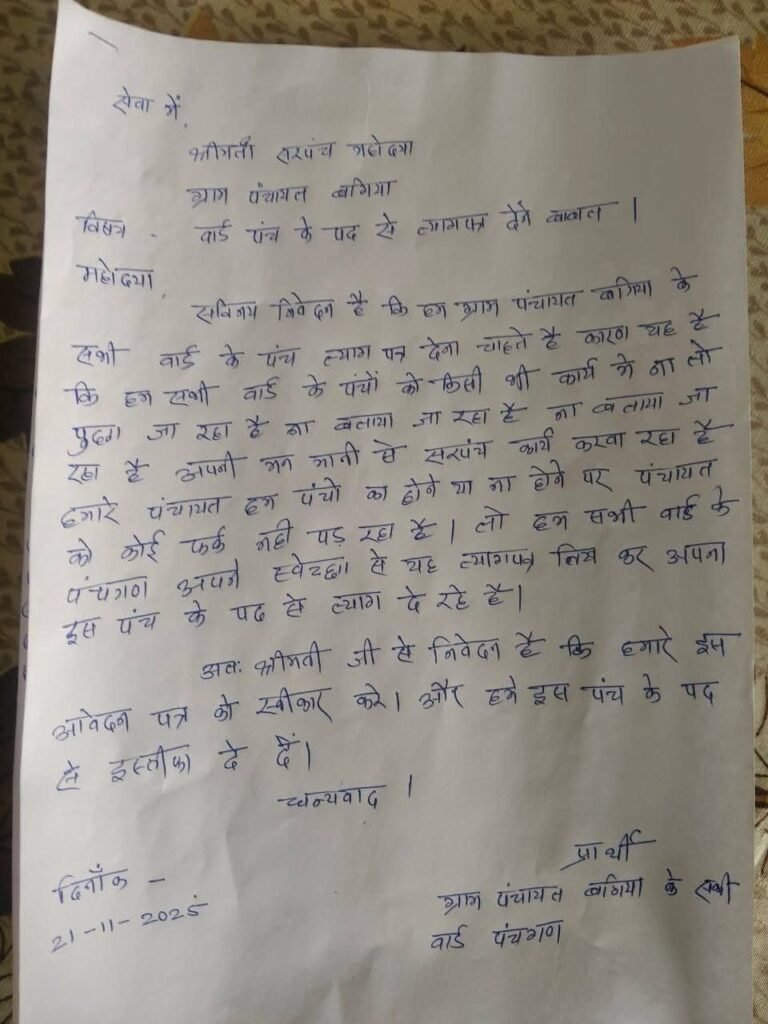 सेवा में,
श्रीमती सरपंच महोदया
ग्राम पंचायत बगिया
विषय - वार्ड पंच के पद से त्यागपत्र देने बाबत ।
महोदया
सविनय निवेदन है कि हम ग्राम पंचायत बगिया के
सभी वार्ड के पंच त्याग पत्र देना चाहते है कारण यह है
कि हम सभी वार्ड के पंचों को किसी भी कार्य में ना तो
पुछा जा रहा है ना बताया जा रहा है ना बताया जा
रहा है अपनी मन मानी से सरपंच कार्य करवा रहा है
हमारे पंचायत हम पंचो का होने या ना होने पर पंचायत
को कोई फर्क नही पड़ रहा है । तो हम सभी वार्ड के
पंचगण अपने स्वेच्छा से यह त्यागपत्र लिख कर अपना
इस पंच के पद से त्याग दे रहे है।
अतः श्रीमती जी से निवेदन है कि हमारे इस
आवेदन पत्र को स्वीकार करे। और हमे इस पंच के पद
से इस्तीफा दे दें।
धन्यवाद ।
प्रार्थी
दिनाँक -
ग्राम पंचायत बगिया के सभी
21-11-2025
वार्ड पंचगण